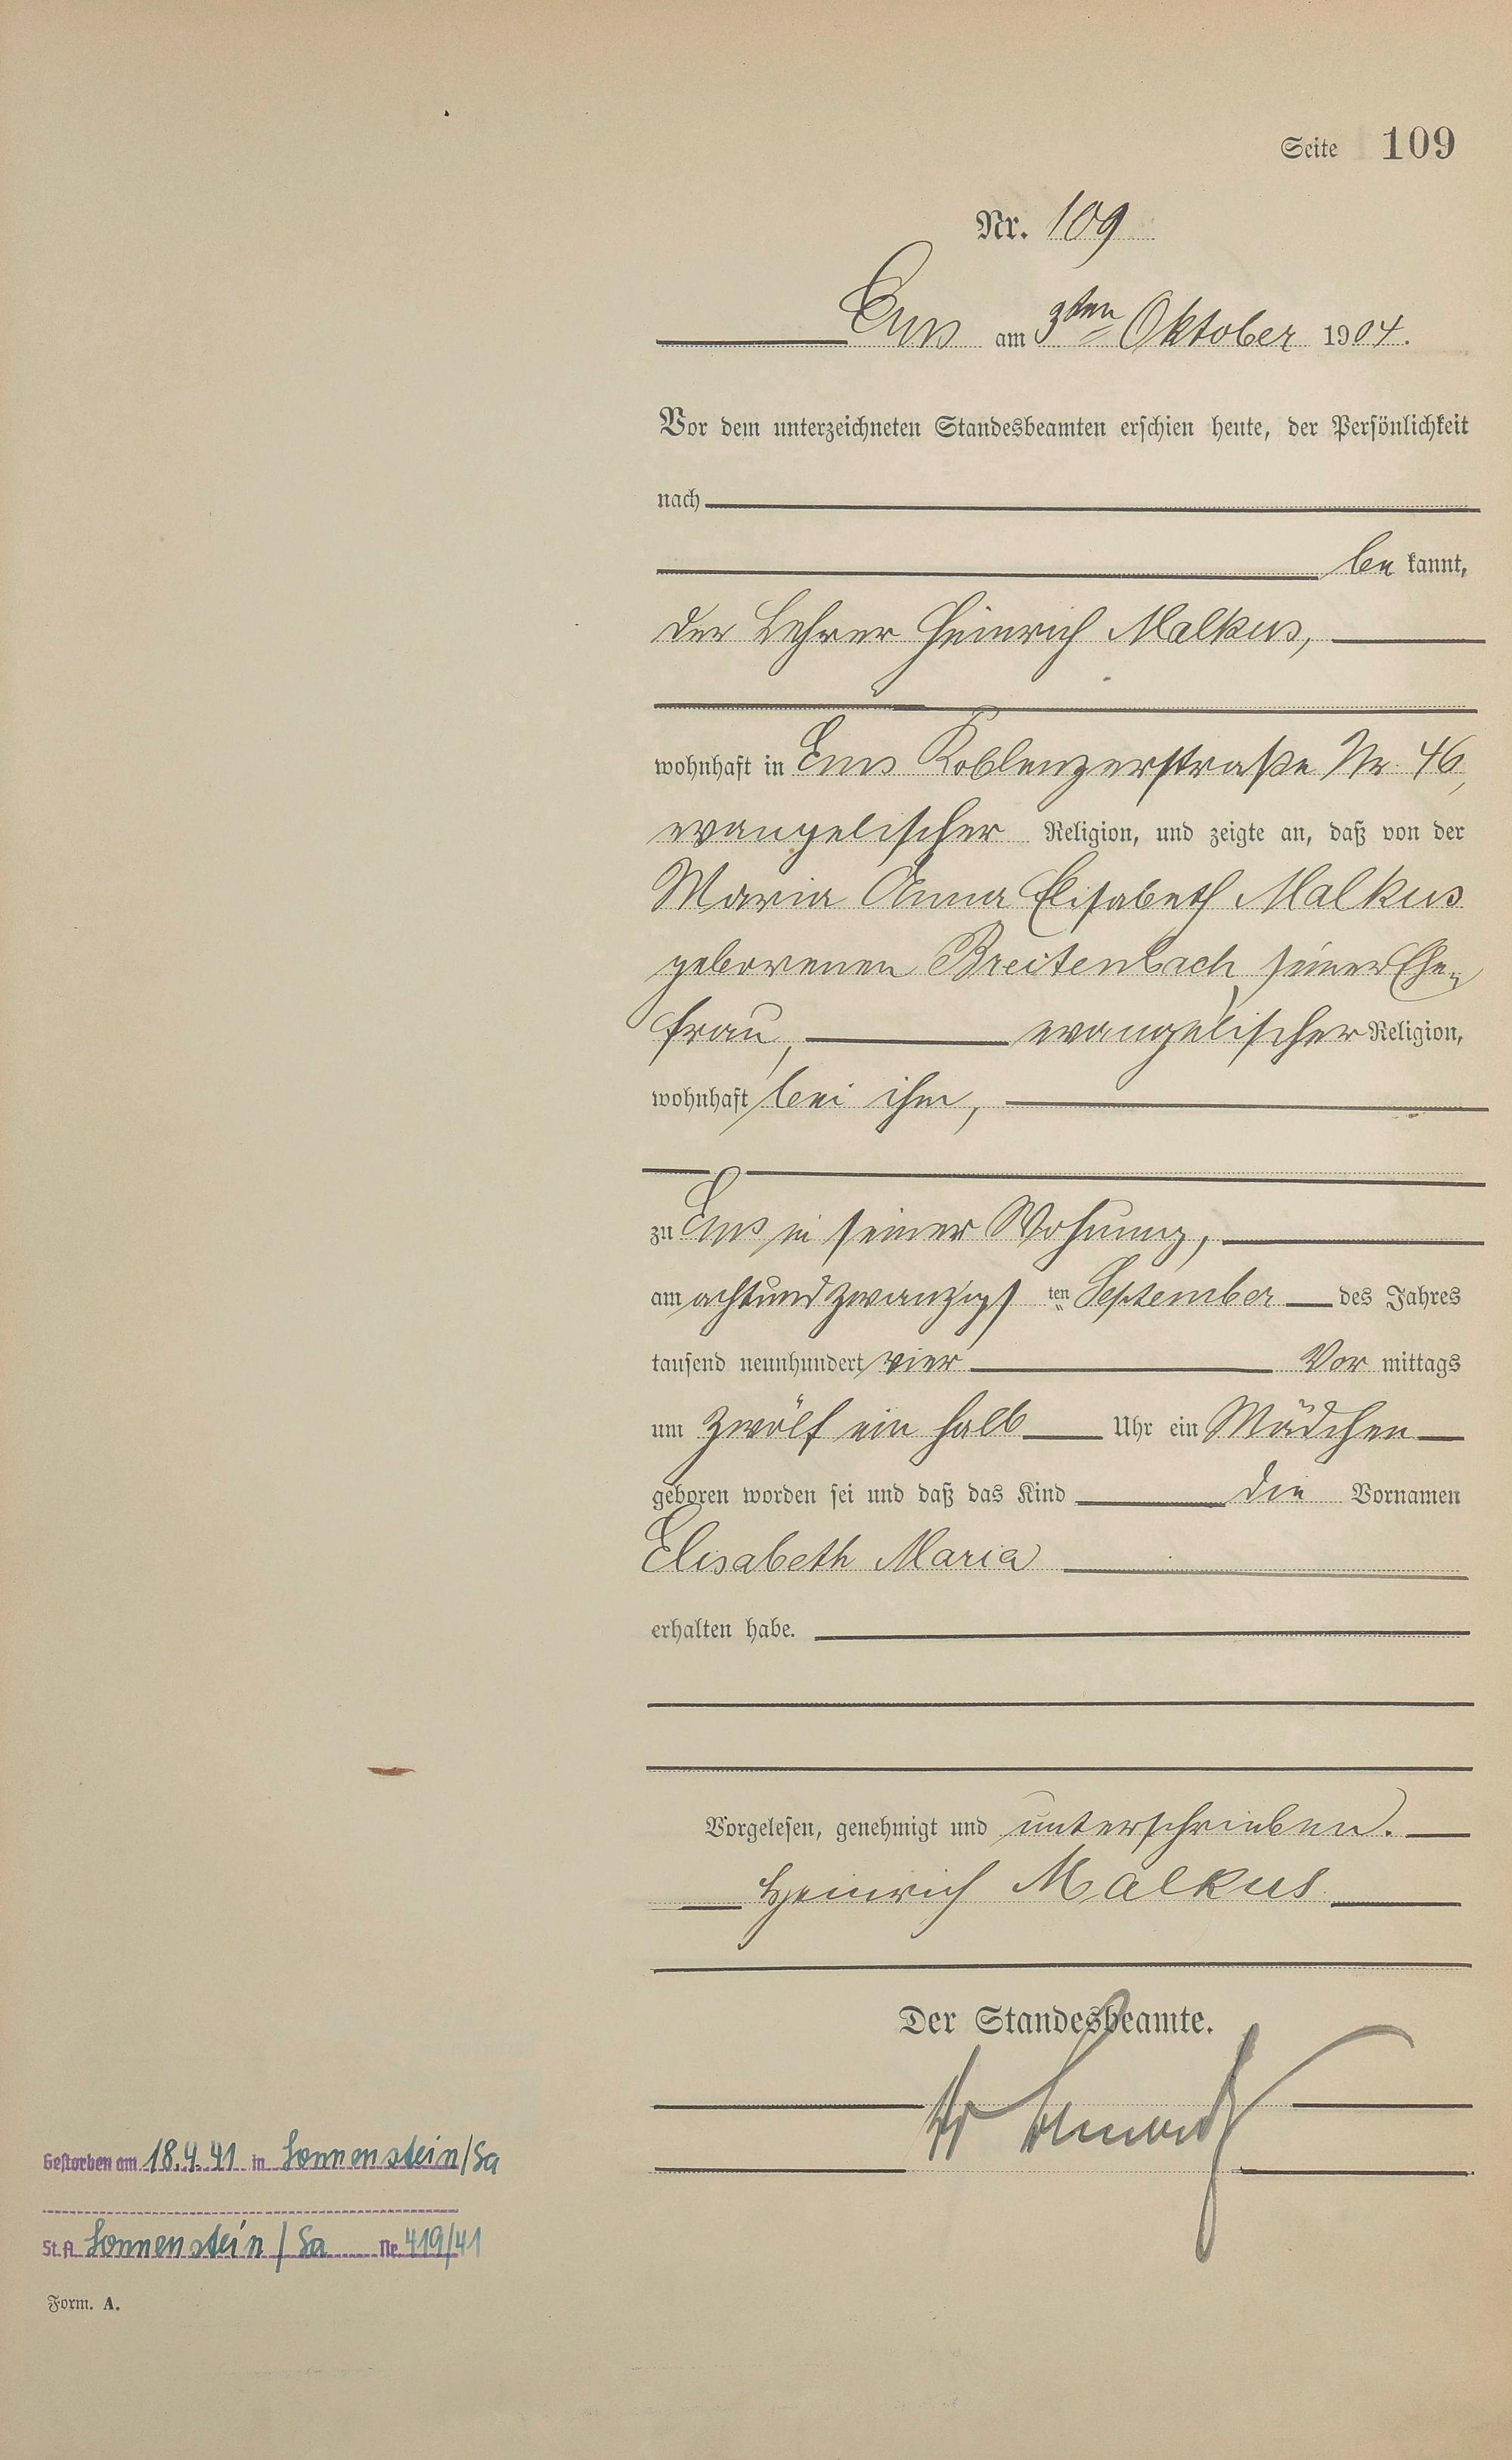 Seite 109
Nr. 109
Ems am 3ten Oktober 1904.
Vor dem unterzeichneten Standesbeamten erschien heute, der Persönlichkeit
nach
be kannt,
der Lehrer Heinrich Malkus,
wohnhaft in Ems Koblenzerstraße Nr. 46,
evangelischer Religion, und zeigte an, daß von der
Maria Anna Elisabeth Malkus
geborenen Breitenbach, seiner Ehe-
frau, evangelischer Religion,
wohnhaft bei ihm,
zu Ems in seiner Wohnung,
am achtundzwanzigs ten September des Jahres
tausend neunhundert vier Vor mittags
um zwölf ein halb Uhr ein Mädchen
geboren worden sei und daß das Kind die Vornamen
Elisabeth Maria
erhalten habe.
Vorgelesen, genehmigt und unterschrieben.
Heinrich Malkus
Der Standesbeamte.
Gestorben am 18.4.41 in Sonnenstein/Sa
St.A. Sonnenstein/Sa Nr. 419/41
Form. A.